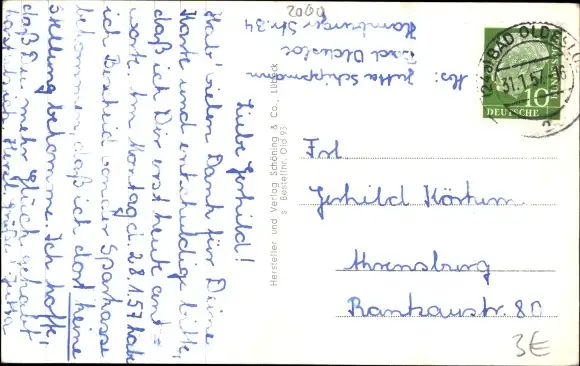 Liebe Gerhild!
Hab' vielen Dank für Deine
Karte und entschuldige bitte,
daß ich Dir erst heute ant=
worte. Am Montag d. 28.1.57 habe
ich Bescheid von der Sparkasse
bekommen, daß ich dort keine
Stellung bekomme. Ich hoffe,
daß Du mehr Glück gehabt
hast. Herzl. Grüße Jutta
Abs: Jutta Schippmann
Bad Oldesloe
Hamburger Str. 34
0902
Hersteller und Verlag Schöning & Co., Lübeck
s Bestellnr. Old 93
BAD OLDESLOE
31.1.57
10
DEUTSCHE
BUNDESPOST
Frl
Gerhild Körtum
Ahrensburg
Rantzaustr. 80
3€